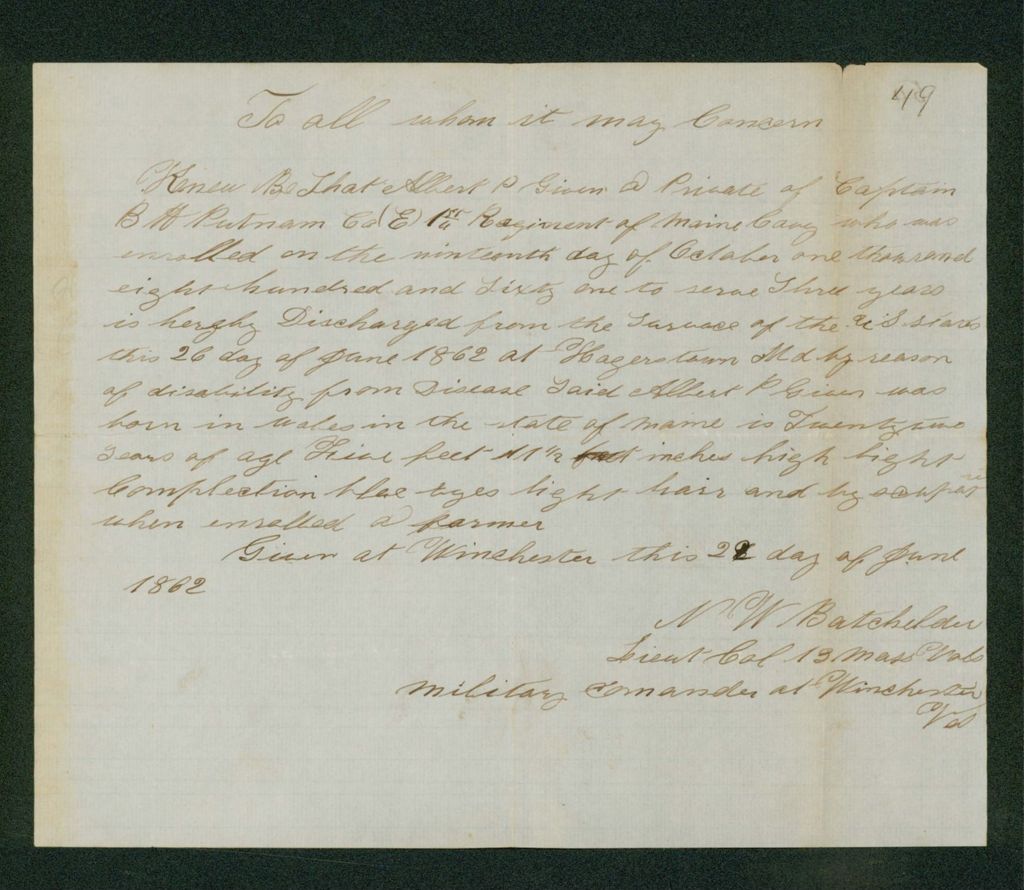 49
To all whom it may Concern
Know Be That Albert P Given a Private of Captain
B H Putnam Co (E) 1st Regiment of Maine Cavy who was
enrolled on the ninteenth day of October one thousand
eight hundred and Sixty one to serve Three years
is hereby Discharged from the Survace of the U S States
this 26 day of June 1862 at Hagerstown Md by reason
of disability from Disease Said Albert P Given was
born in Wales in the state of Maine is Twenty two
years of age Five feet 11 1/2 inches high light
Complection blue eyes light hair and by
when enrolled a farmer
Given at Winchester this day of June
1862
N W Batchelder
Lieut Col 13 Mass Vols
Military comander at Winchester
Va